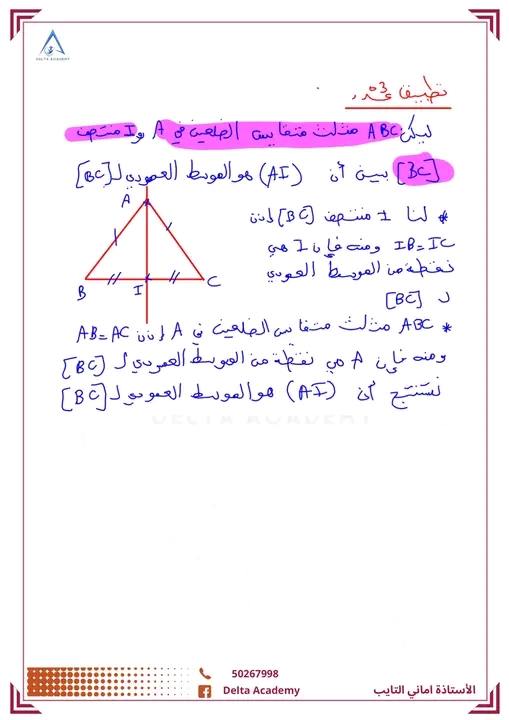 DELTA ACADEMY
تطبيق عدد 3
ليكن ABC مثلث متقايس الضلعين في A و I منتصف
[BC] بين أن (AI) هو الموسط العمودي لـ [BC]
* لنا I منتصف [BC] إذن
IB = IC ومنه فإن I هي
نقطة من الموسط العمودي
لـ [BC]
A
B
I
C
* ABC مثلث متقايس الضلعين في A إذن AB = AC
ومنه فإن A هي نقطة من الموسط العمودي لـ [BC]
نستنتج أن (AI) هو الموسط العمودي لـ [BC]
DELTA ACADEMY
50267998
Delta Academy
الأستاذة اماني التايب